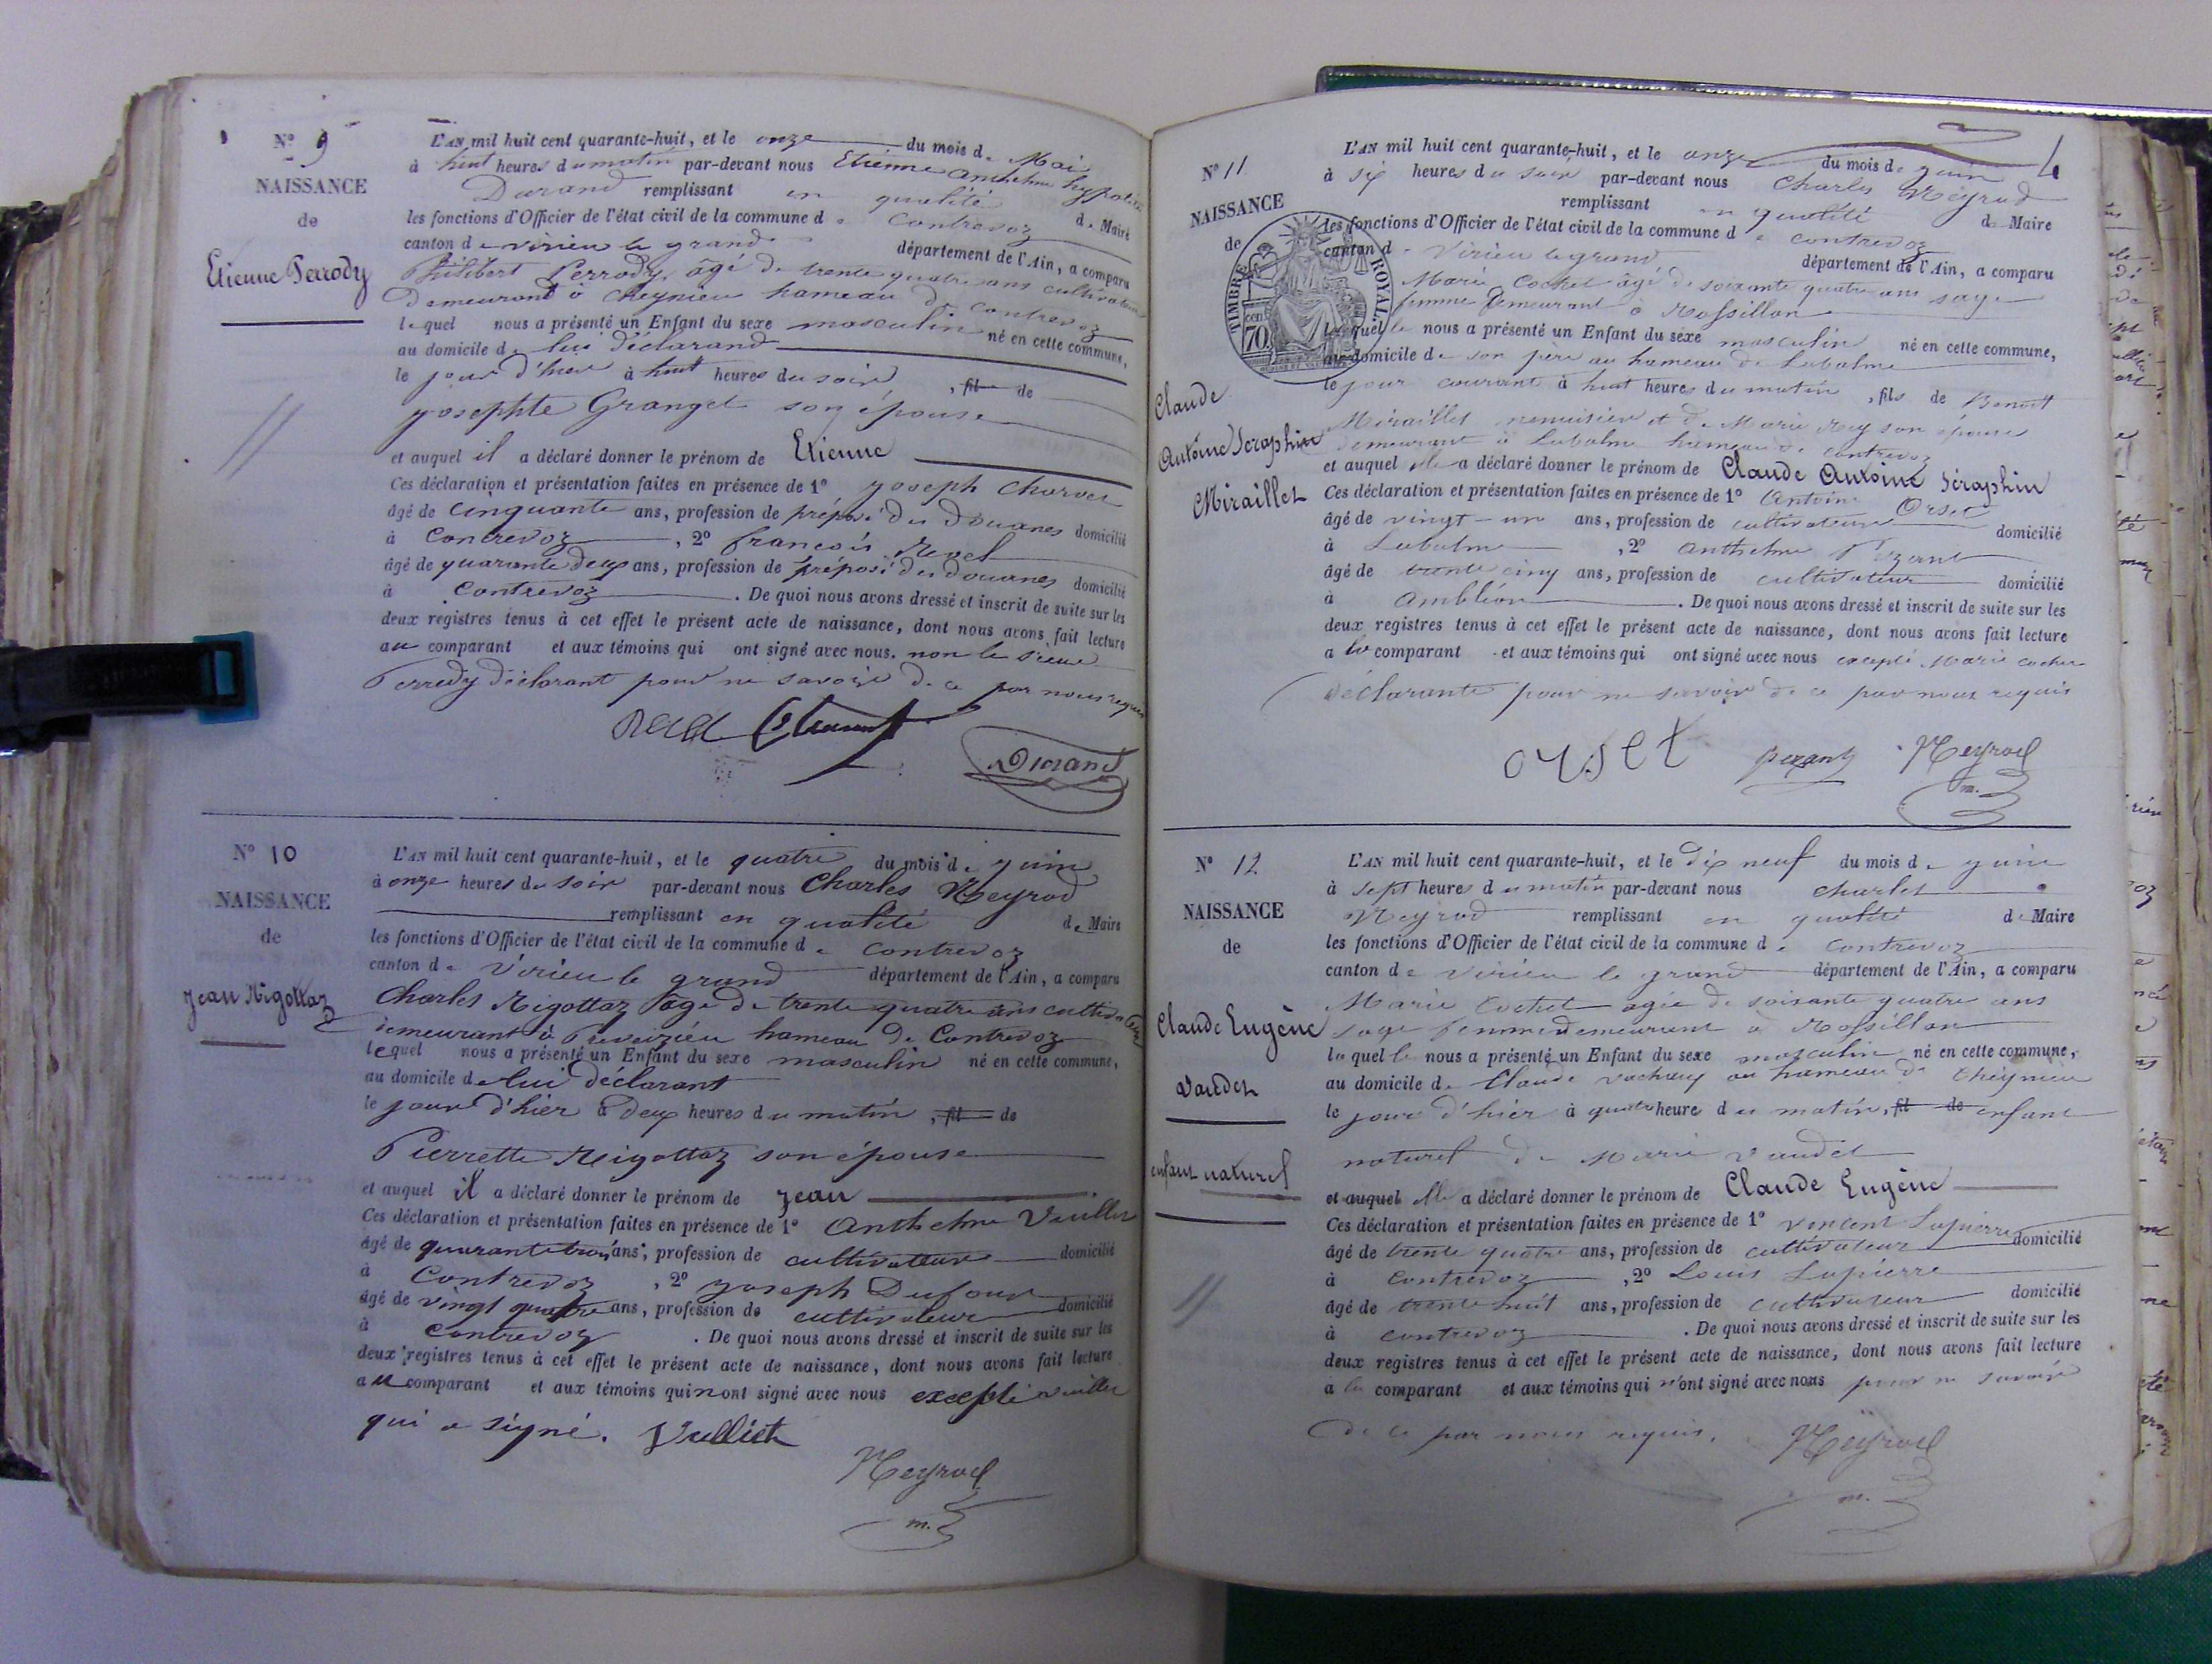 N° 9
NAISSANCE
de
Etienne Perrody
L'AN mil huit cent quarante-huit, et le onze du mois de Mai
à huit heures du matin par-devant nous Etienne anthelme hypolite
Durand remplissant en qualité de Maire
les fonctions d'Officier de l'état civil de la commune de Contrevoz
canton de virieu le grand département de l'Ain, a comparu
Philibert Perrody, âgé de trente quatre ans cultivateur
Demeurant à Cheynieu hameau de Contrevoz
lequel nous a présenté un Enfant du sexe masculin né en cette commune,
au domicile de lui déclarand
le jour d'hier à huit heures du soir, fil de
josephte Granget son épouse
et auquel il a déclaré donner le prénom de Etienne
Ces déclaration et présentation faites en présence de 1° joseph Charvet
âgé de cinquante ans, profession de préposé des Douanes domicilié
à Contrevoz, 2° françois Revel
âgé de quarante deux ans, profession de préposé des douanes domicilié
à Contrevoz. De quoi nous avons dressé et inscrit de suite sur les
deux registres tenus à cet effet le présent acte de naissance, dont nous avons fait lecture
au comparant et aux témoins qui ont signé avec nous. non le sieur
Perrody déclarant pour ne savoir de ce par nous requis
Revel Durand
N° 10
NAISSANCE
de
Jean Rigottaz
L'AN mil huit cent quarante-huit, et le quatre du mois de juin
à onze heures du soir par-devant nous Charles Meyrod
remplissant en qualité de Maire
les fonctions d'Officier de l'état civil de la commune de Contrevoz
canton de Virieu le grand département de l'Ain, a comparu
Charles Rigottaz âgé de trente quatre ans cultivateur
demeurant à Preveizieu hameau de Contrevoz
lequel nous a présenté un Enfant du sexe masculin né en cette commune,
au domicile de lui déclarant
le jour d'hier à deux heures du matin, fil de
Pierrette Rigottaz son épouse
et auquel il a déclaré donner le prénom de jean
Ces déclaration et présentation faites en présence de 1° Anthelme Vuillet
âgé de quarante trois ans, profession de cultivateur domicilié
à Contrevoz, 2° joseph Dufour
âgé de vingt quatre ans, profession de cultivateur domicilié
à Contrevoz. De quoi nous avons dressé et inscrit de suite sur les
deux registres tenus à cet effet le présent acte de naissance, dont nous avons fait lecture
au comparant et aux témoins qui n'ont signé avec nous excepté vuillet
qui a signé. Vulliet
Meyrod
m.
4
N° 11
NAISSANCE
de
TIMBRE ROYAL
70
Claude
Antoine Séraphin
Miraillet
L'AN mil huit cent quarante-huit, et le onze du mois de juin
à six heures du soir par-devant nous Charles Meyrod
remplissant en qualité de Maire
les fonctions d'Officier de l'état civil de la commune de Contrevoz
canton de Virieu le grand département de l'Ain, a comparu
Marie Cochet âgé de soixante quatre ans sage
femme demeurant à Rossillon
lequelle nous a présenté un Enfant du sexe masculin né en cette commune,
au domicile de son père au hameau de Labalme
le jour courant à huit heures du matin, fils de Benoit
Miraillet menuisier et de Marie Rey son épouse
demeurant à Labalme hameau de Contrevoz
et auquel elle a déclaré donner le prénom de Claude Antoine Séraphin
Ces déclaration et présentation faites en présence de 1° Antoine Orset
âgé de vingt-un ans, profession de cultivateur domicilié
à Labalme, 2° Anthelme Pezant
âgé de trente cinq ans, profession de cultivateur domicilié
à Ambléon. De quoi nous avons dressé et inscrit de suite sur les
deux registres tenus à cet effet le présent acte de naissance, dont nous avons fait lecture
a la comparant et aux témoins qui ont signé avec nous excepté Marie Cochet
déclarante pour ne savoir de ce par nous requis
orset pezant Meyrod
m.
N° 12
NAISSANCE
de
Claude Eugène
Vaudet
enfant naturel
L'AN mil huit cent quarante-huit, et le dix neuf du mois de juin
à sept heures du matin par-devant nous Charles
Meyrod remplissant en qualité de Maire
les fonctions d'Officier de l'état civil de la commune de Contrevoz
canton de Virieu le grand département de l'Ain, a comparu
Marie Cochet agée de soixante quatre ans
sage femme demeurant à Rossillon
laquelle nous a présenté un Enfant du sexe masculin né en cette commune,
au domicile de Claude au hameau de Cheynieu
le jour d'hier à quatre heure du matin, fil de enfant
naturel de Marie Vaudet
et auquel elle a déclaré donner le prénom de Claude Eugène
Ces déclaration et présentation faites en présence de 1° Vincent Lapierre
âgé de trente quatre ans, profession de cultivateur domicilié
à Contrevoz, 2° Louis Lapierre
âgé de trente huit ans, profession de cultivateur domicilié
à contrevoz. De quoi nous avons dressé et inscrit de suite sur les
deux registres tenus à cet effet le présent acte de naissance, dont nous avons fait lecture
a la comparant et aux témoins qui n'ont signé avec nous pour ne savoir
de ce par nous requis. Meyrod
m.